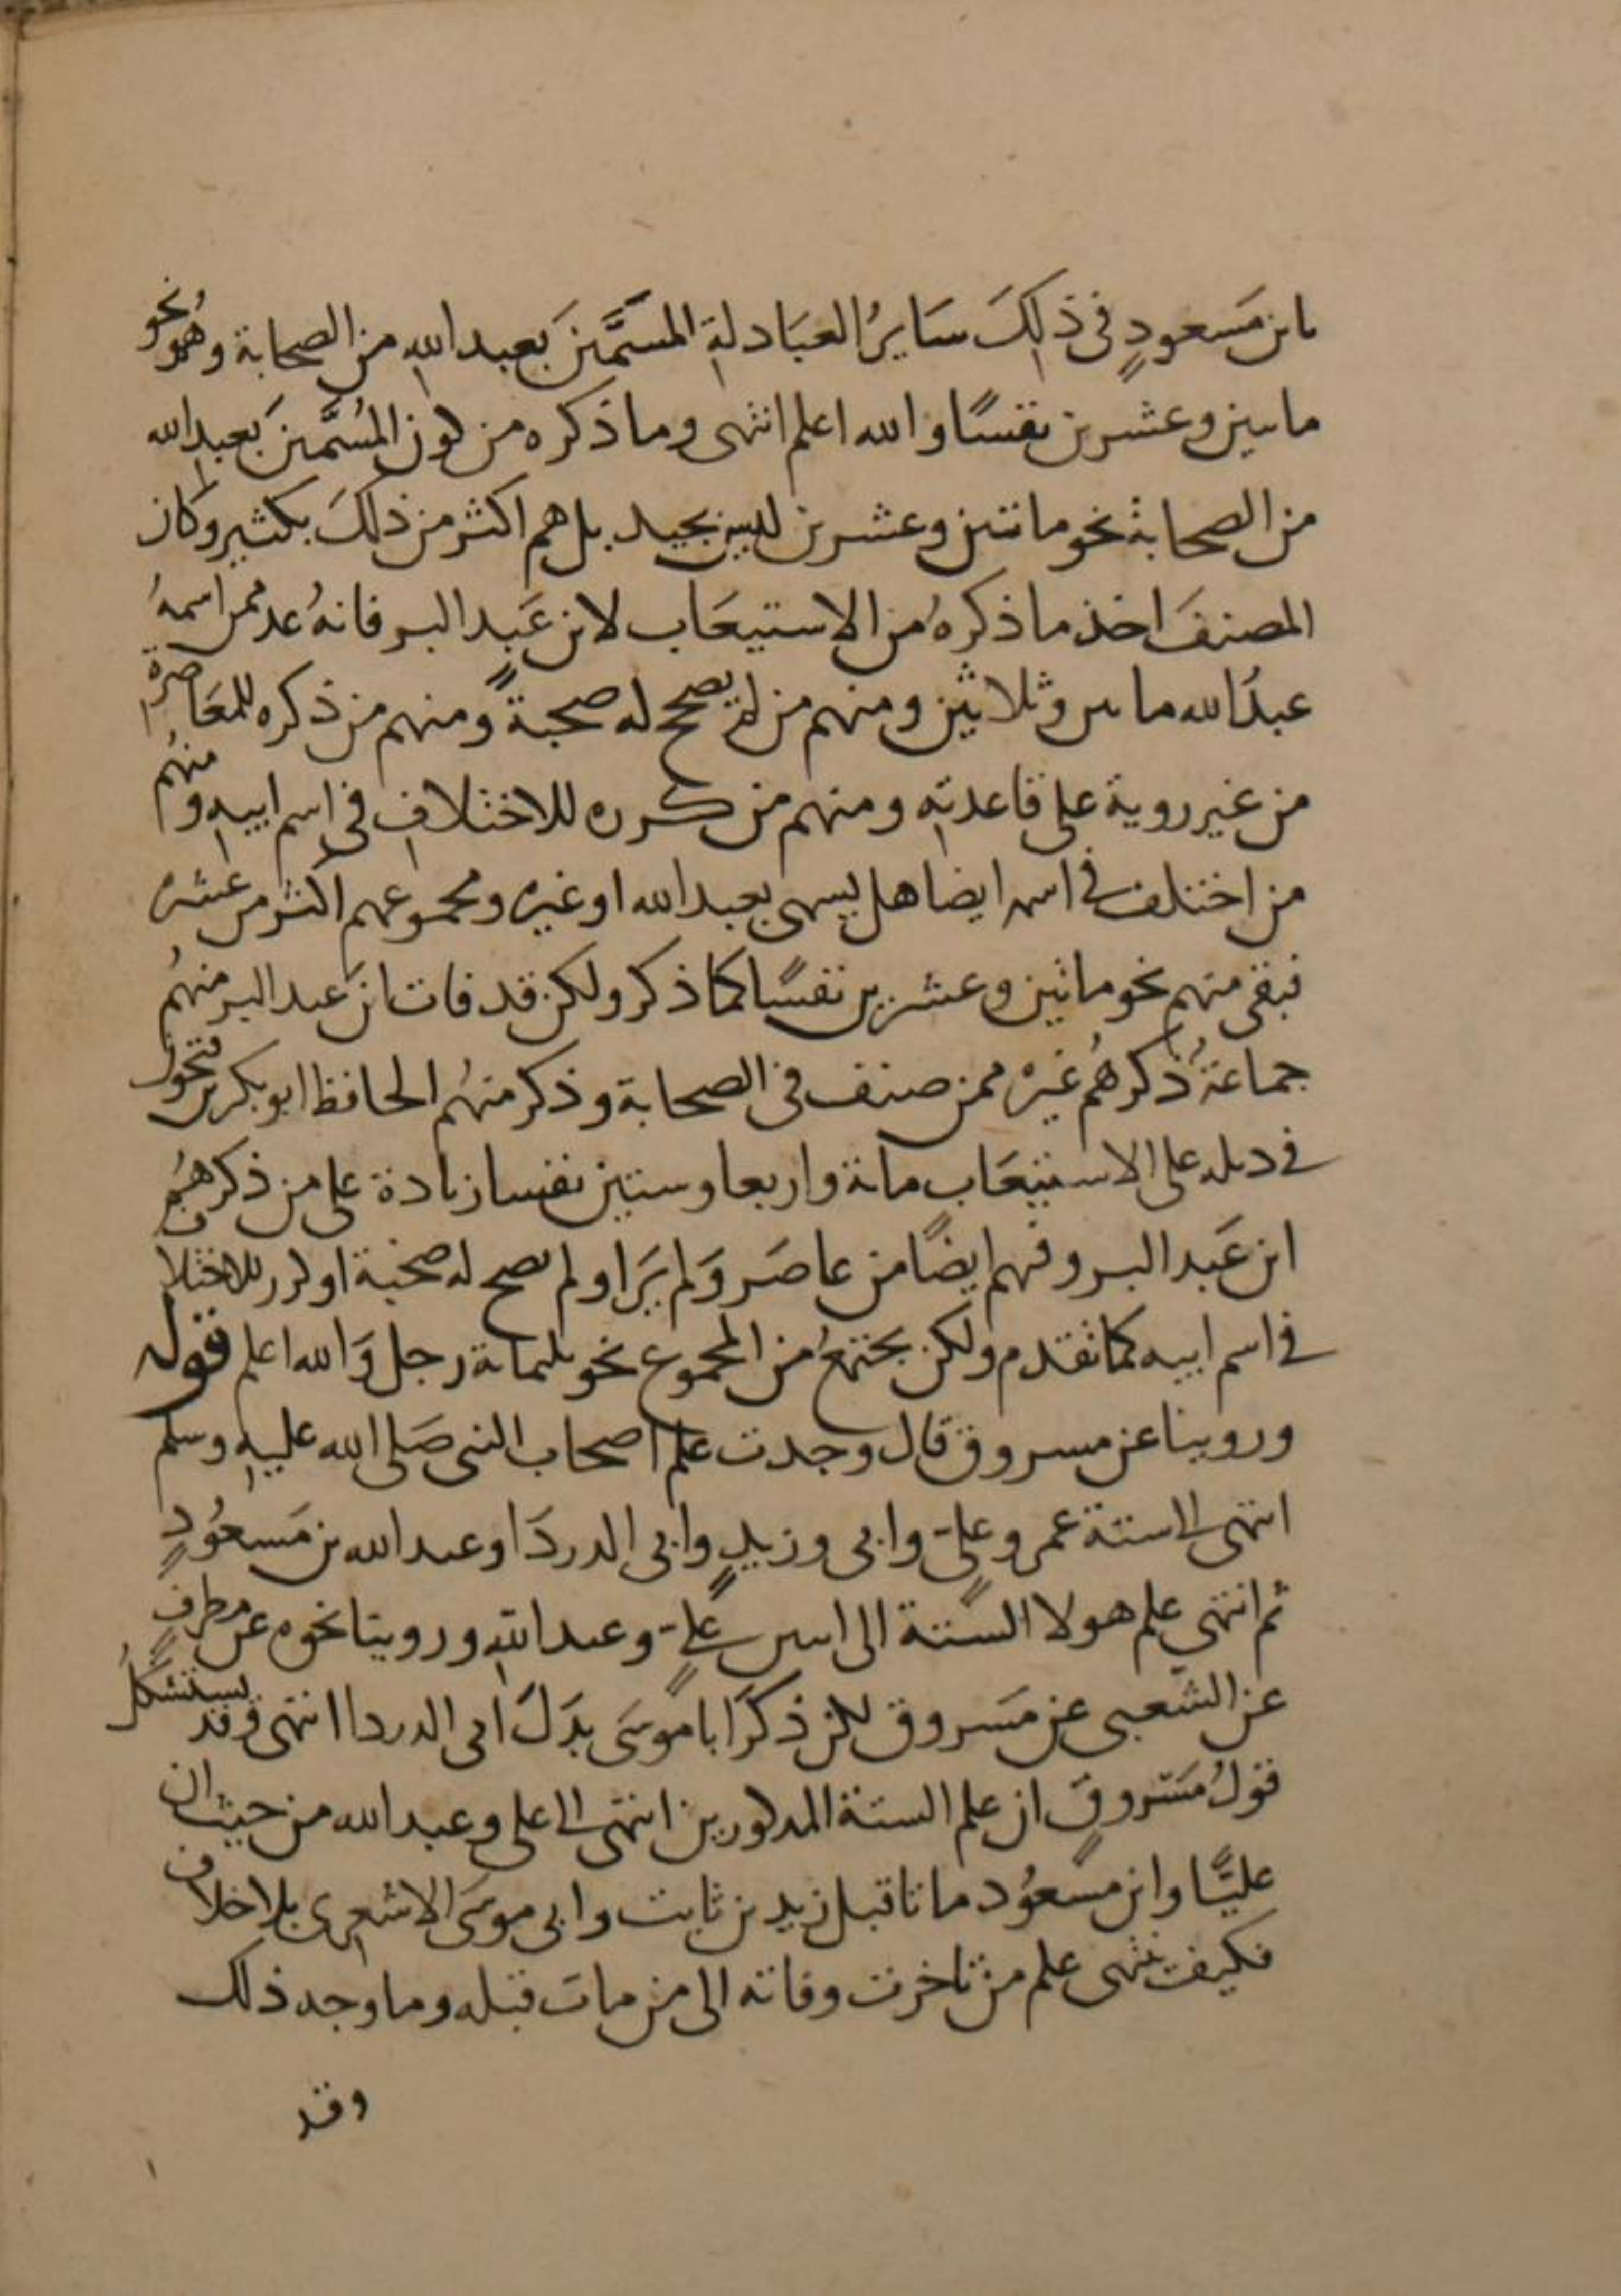 بابن مَسعودٍ في ذلِكَ سَايرُ العبَادلةِ المسَمَّينَ بَعبد اللهِ من الصحابة وهو نحو
مايتين وعشرين نفسًا والله اعلم انتهى وما ذكره من كون المُسَمَّين بَعبد الله
من الصحابة نحو مائتين وعشرين ليس بجيد بل هم اكثر من ذلكَ بكثير وكان
المصنفَ اخذ ما ذكرهُ من الاستيعَاب لابن عَبد البر فانهُ عد ممن اسمهُ
عبدُ الله مايتين وثلاثين ومنهم من لم يصح له صحبةً ومنهم من ذكره للمعَاصرة
من غير روية على قاعدتهِ ومنهم من كرره للاختلافِ في اسم ابيهِ ومنهُم
من اختلف في اسمه ايضا هل يسمى بعبد الله او غيره ومجموعهم اكثر من عشرة
فبقى منهم نحو ماتين وعشرين نفسًا كما ذكر ولكن قد فات ابنَ عبد البر منهُم
جماعةُ ذكرهُم غيره ممن صنف في الصحابة وذكر منهُم الحافظ ابو بكر بن فتحون
في ذيله على الاستيعَاب مائة واربعا وستين نفسا زيادة على من ذكرهُم
ابن عَبد البر وفيهم ايضًا من عاصَر وَلم يَرَ او لم تصح له صُحْبَة او كرر للاختلاف
في اسم ابيه كما تقدم ولكن يجتمعُ من المجموع نحو ثلثمائة رجل وَالله اعلم قوله
وروينا عن مسروق قال وجدت علم اصحاب النبي صَلى الله عليهِ وسلم
انتهى الى ستة عمر وعليٍّ وابي وزيدٍ وابي الدردَا وعبد الله بن مَسعُودٍ
ثم انتهى علم هولا الستة الى اثنين عليٍّ وعبد اللهِ وروينا نحوه عن مطرفٍ
عن الشعبي عن مَسروق لكن ذكرَ ابا مُوسَى بدَلَ ابي الدردا انتهى وقد يستشكلُ
قولُ مَسْروقٍ ان علم الستة المذكورين انتهى الى علي وعبد الله من حيث ان
عليًّا وابن مسعُود ماتا قبل زيد بن ثابت وابي موسَى الاشعري بلا خلاف
فكيف ينتهى علم من تاخرت وفاته الى من مات قبله وما وجه ذلك
وقد